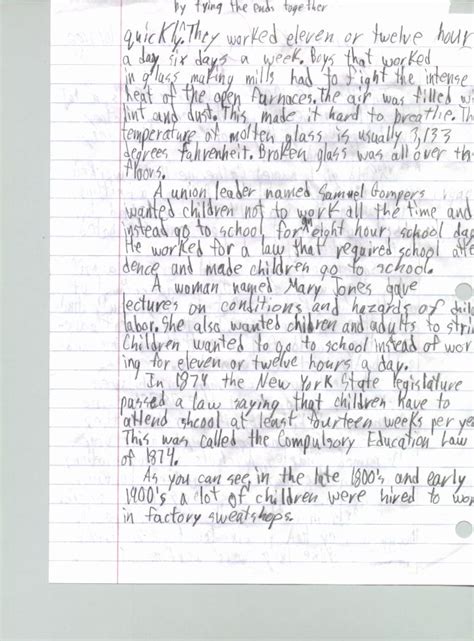 by tying the ends together
quickly. They worked eleven or twelve hour
a day six days a week. Boys that worked
in glass making mills had to fight the intense
heat of the open furnaces. The air was filled wi
lint and dust. This made it hard to breathe. Th
temperature of molten glass is usually 3,133
degrees fahrenheit. Broken glass was all over th
floors.
A union leader named Samuel Gompers
wanted children not to work all the time and
instead go to school for eight hour school day
He worked for a law that required school atte
dence and made children go to school.
A woman named Mary Jones gave
lectures on conditions and hazards of child
labor. She also wanted children and adults to stri
Children wanted to go to school instead of wor
ing for eleven or twelve hours a day.
In 1874 the New York State legislature
passed a law saying that children have to
attend shcool at least fourteen weeks per ye
This was called the Compulsory Education Law
of 1874.
As you can see, in the late 1800's and early
1900's a lot of children were hired to wo
in factory sweatshops.